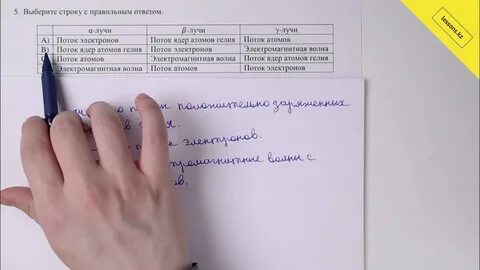 5. Выберите строку с правильным ответом.
α-лучи β-лучи γ-лучи
A) Поток электронов Поток атомов гелия Поток ядер атомов гелия
B) Поток ядер атомов гелия Поток электронов Электромагнитная волна
Поток атомов Электромагнитная волна Поток ядер атомов гелия
Электромагнитная волна Поток атомов Поток электронов
положительно заряженных
электронов.
волны с
lessons.kz